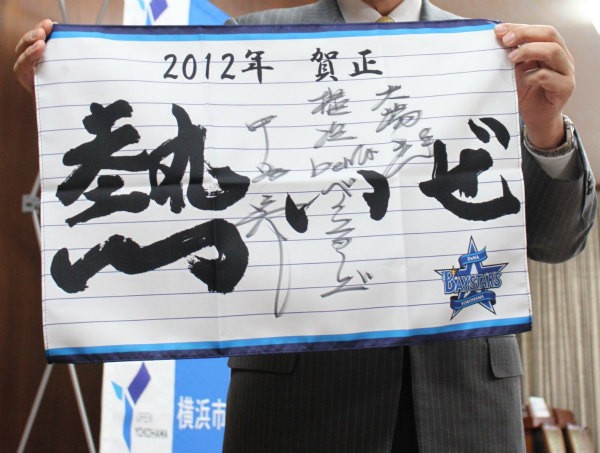 2012年 賀正
熱いぜ
横浜DeNAベイスターズ
中畑 清
DeNA
BAYSTARS
YOKOHAMA
OPEN
YOKOHAMA
横浜市